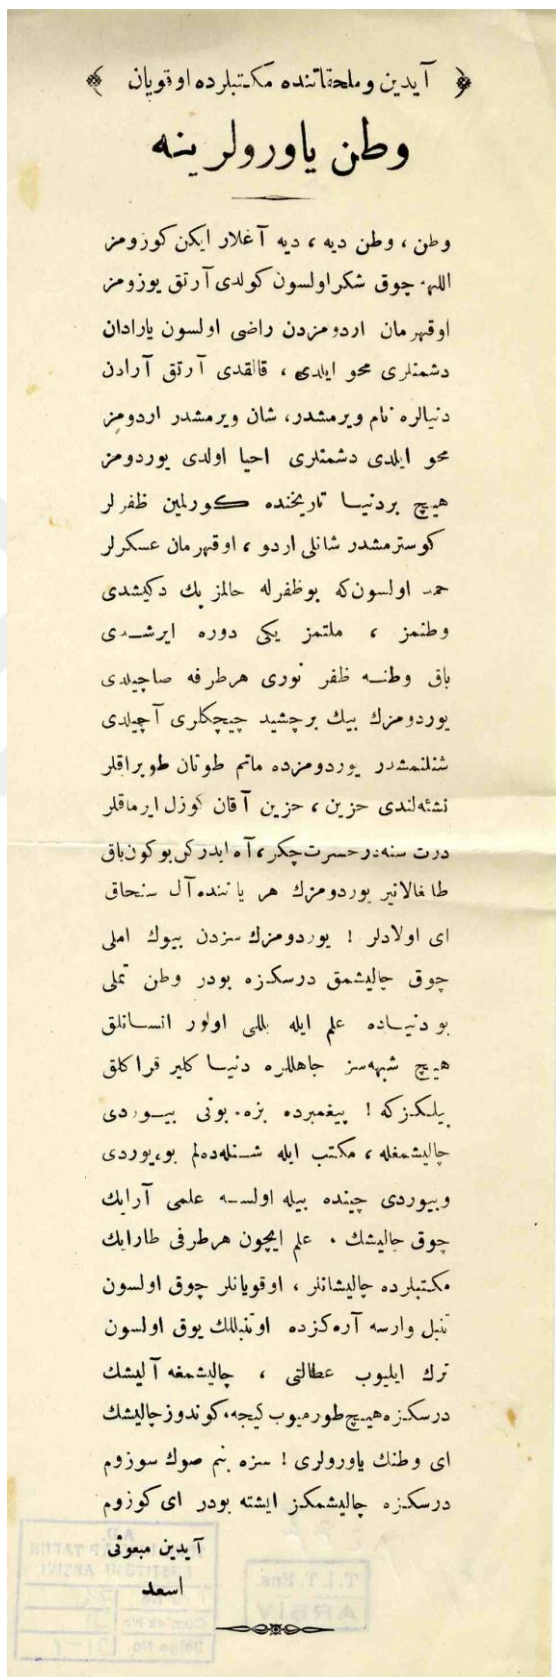 آیدین و ملحقاتنده مکتبلرده اوقویان
وطن یاورولرینه
وطن ، وطن دیه ، دیه آغلار ایکن کوزومز
اللهه چوق شکر اولسون کولدی آرتق یوزومز
اوقهرمان اردومزدن راضی اولسون یارادان
دشمنلری محو ایلدی ، قالقدی آرتق آرادن
دنیالره نام ویرمشدر، شان ویرمشدر اردومز
محو ایلدی دشمنلری احیا اولدی یوردومز
هیچ بردنیا تاریخنده کورلمین ظفرلر
کوسترمشدر شانلی اردو ، اوقهرمان عسکرلر
حمد اولسون که بوظفرله حالمز پك دکیشدی
وطنمز ، ملتمز یکی دوره ایرشدی
باق وطنه ظفر نوری هرطرفه صاچیلدی
یوردومزك بیك برچشید چیچکلری آچیلدی
شنلنمشدر یوردومزده ماتم طوتان طوپراقلر
نشئه‌لندی حزین ، حزین آقان کوزل ایرماقلر
درت سنه‌در حسرت چکر، آه ایدرکن بوکون باق
طالغالانیر یوردومزك هر یاننده آل سنجاق
ای اولادلر ! یوردومزك سزدن بیوك املی
چوق چالیشمق درسکزه بودر وطن تملی
بو دنیاده علم ایله بللی اولور انسانلق
هیچ شبهه‌سز جاهللره دنیا کلیر قراکلق
بیلکزکه ! پیغمبرده بزه بونی بیوردی
چالیشمغله ، مکتب ایله شنله‌ده‌لم بو یوردی
وبیوردی چینده بیله اولسه علمی آرایك
چوق چالیشك . علم ایچون هرطرفی طارایك
مکتبلرده چالیشانلر ، اوقویانلر چوق اولسون
تنبل وارسه آره‌کزده اوتنبللك یوق اولسون
ترك ایلیوب عطالتی ، چالیشمغه آلیشك
درسکزه هیچ طورمیوب کیجه، کوندوز چالیشك
ای وطنك یاورولری ! سزه بنم صوك سوزوم
درسکزه چالیشمکز ایشته بودر ای کوزوم
آیدین مبعوثی
اسعد
T.I.T. Ens.
ARŞİV